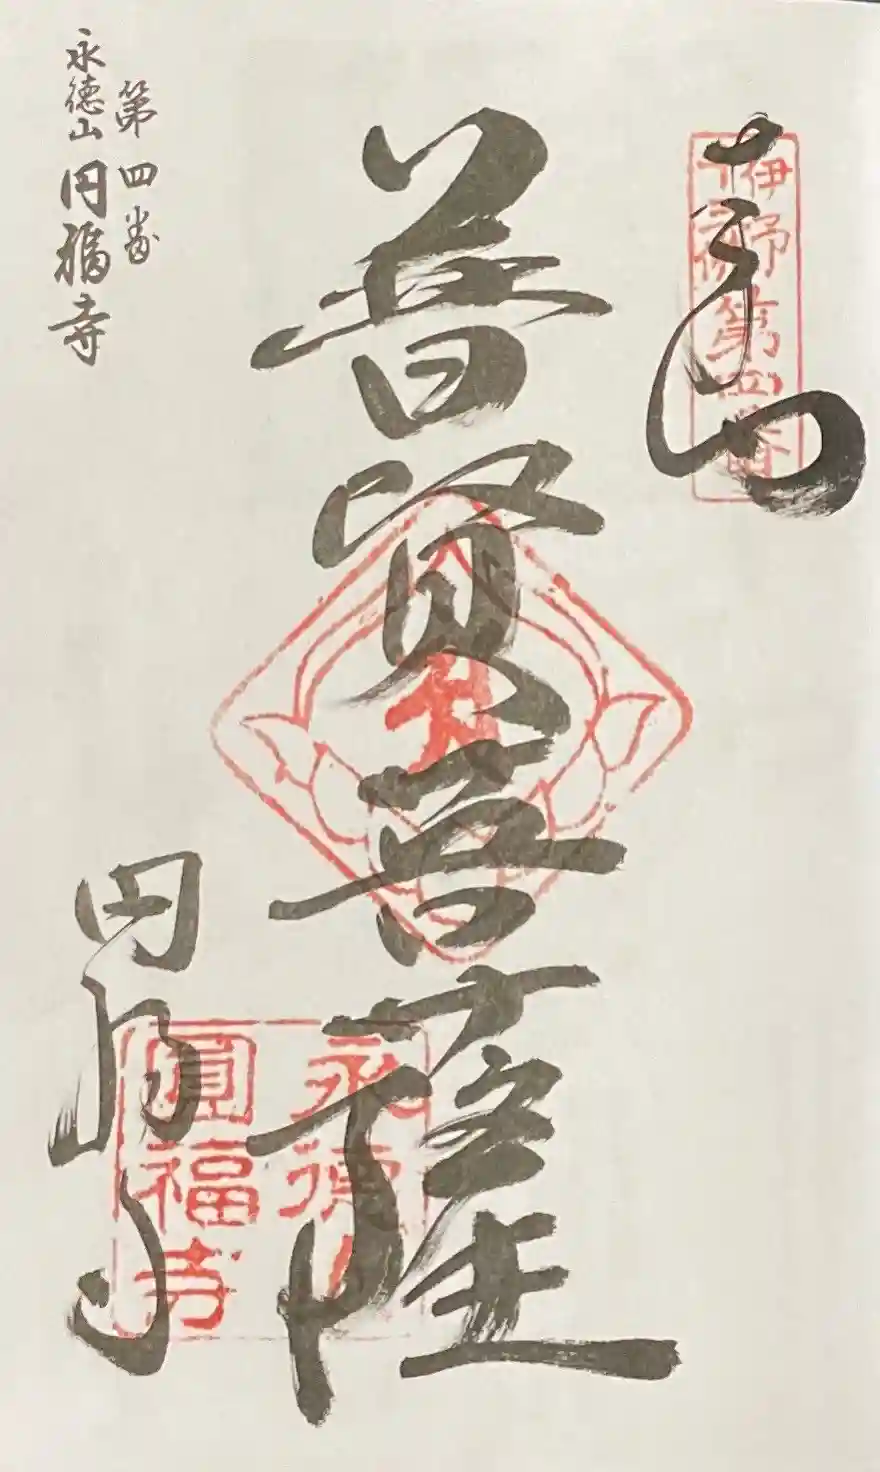 奉拝
伊予
十三佛
第四番
普賢菩薩
永徳山
圓福寺
円福寺
第四番
永徳山 円福寺